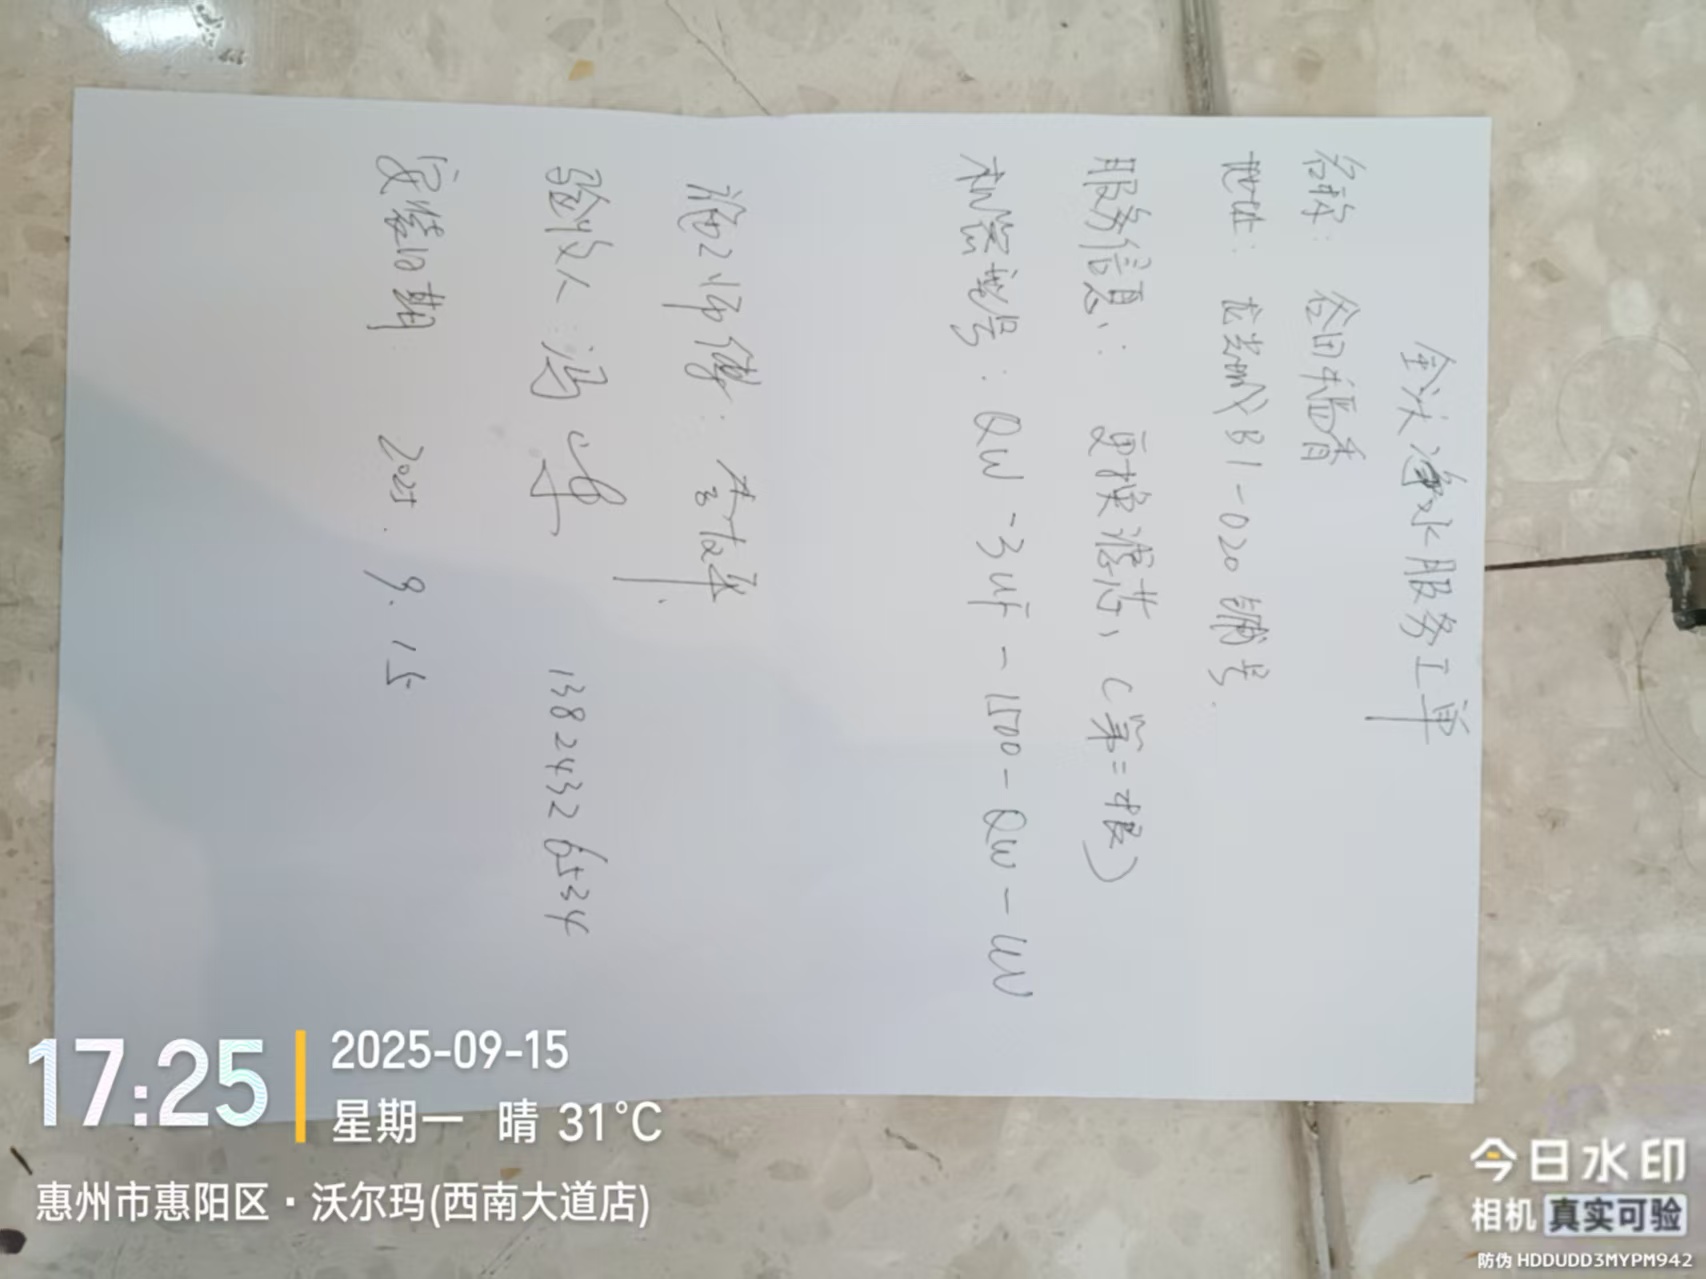 全沃净水服务工单
名称: 谷田稻香
地址: 龙光城B1-020铺号.
服务信息: 更换滤芯, (第二根)
机器型号: QW-3uf-1500-QW-UV
施工师傅: 李
验收人: 冯 13824326534
安装日期 2025.9.15
17:25
2025-09-15
星期一 晴 31°C
惠州市惠阳区·沃尔玛(西南大道店)
今日水印
相机 真实可验
防伪 HDDUDD3MYPM942